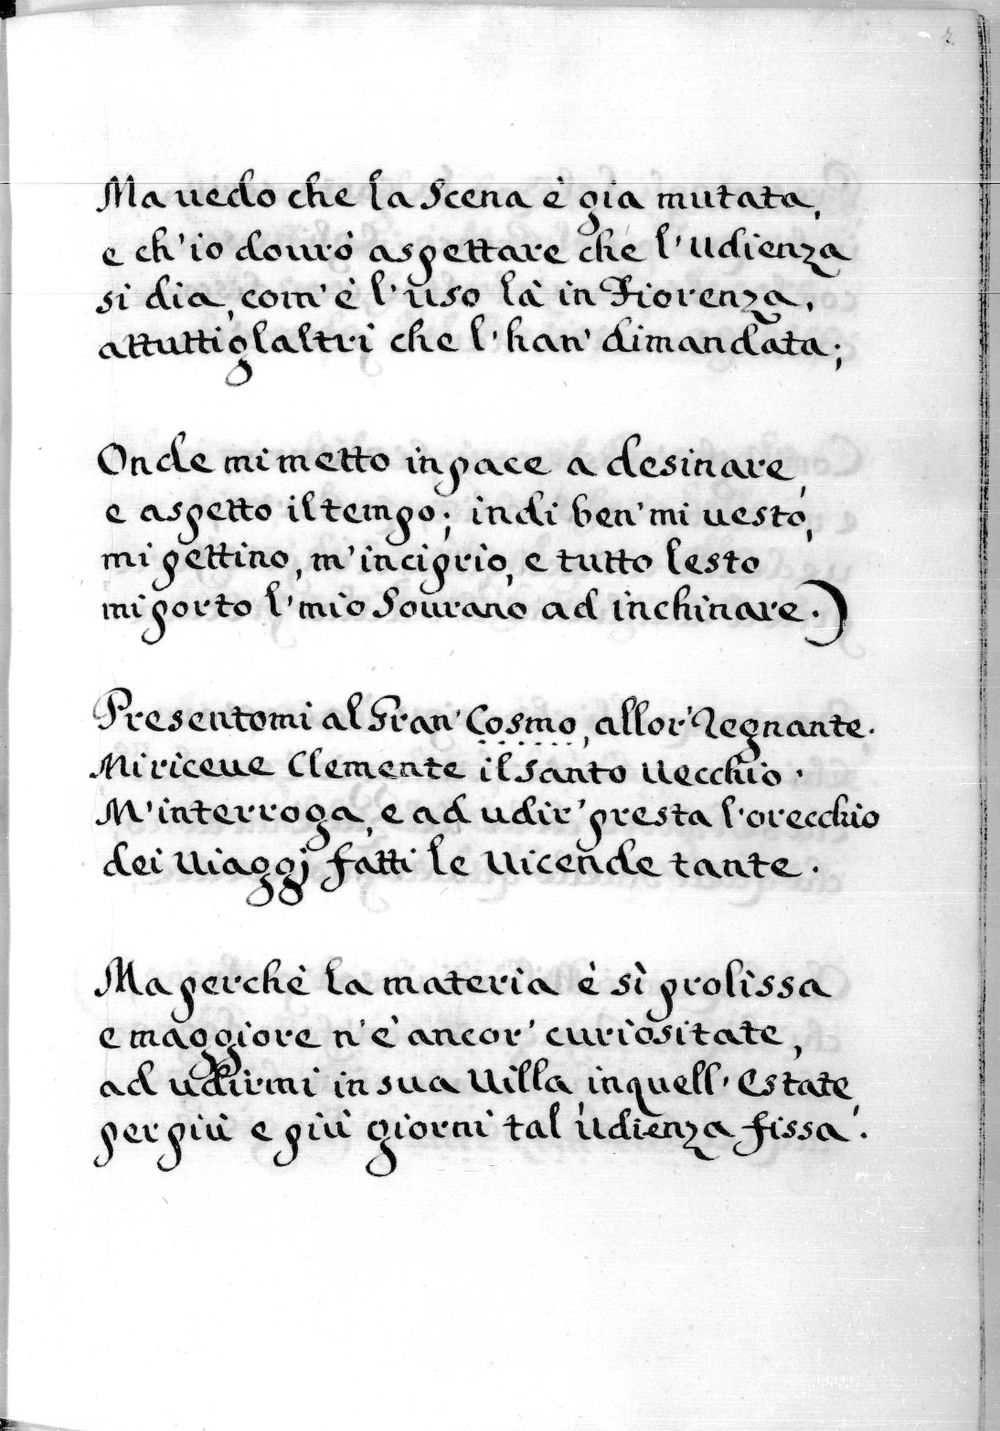 Ma uedo che la Scena è gia mutata,
e ch'io dourò aspettare che l'Udienza
si dia, com'è l'uso là in Fiorenza,
attutti glaltri che l'han' dimandata;
Onde mi metto in pace a desinare,
e aspetto il tempo; indi ben' mi uesto,
mi pettino, m'inciprio, e tutto lesto
mi porto l'mio Sourano ad inchinare.)
Presentomi al Gran' Cosmo, allor' Regnante.
Mi riceue Clemente il Santo Uecchio.
M'interroga, e ad udir' presta l'orecchio
dei Uiaggi fatti le Uicende tante.
Ma perchè la materia è sì prolissa
e maggiore n'è ancor' curiositate,
ad udirmi in sua Uilla in quell'Estate,
per più e più giorni tal Udienza fissa.